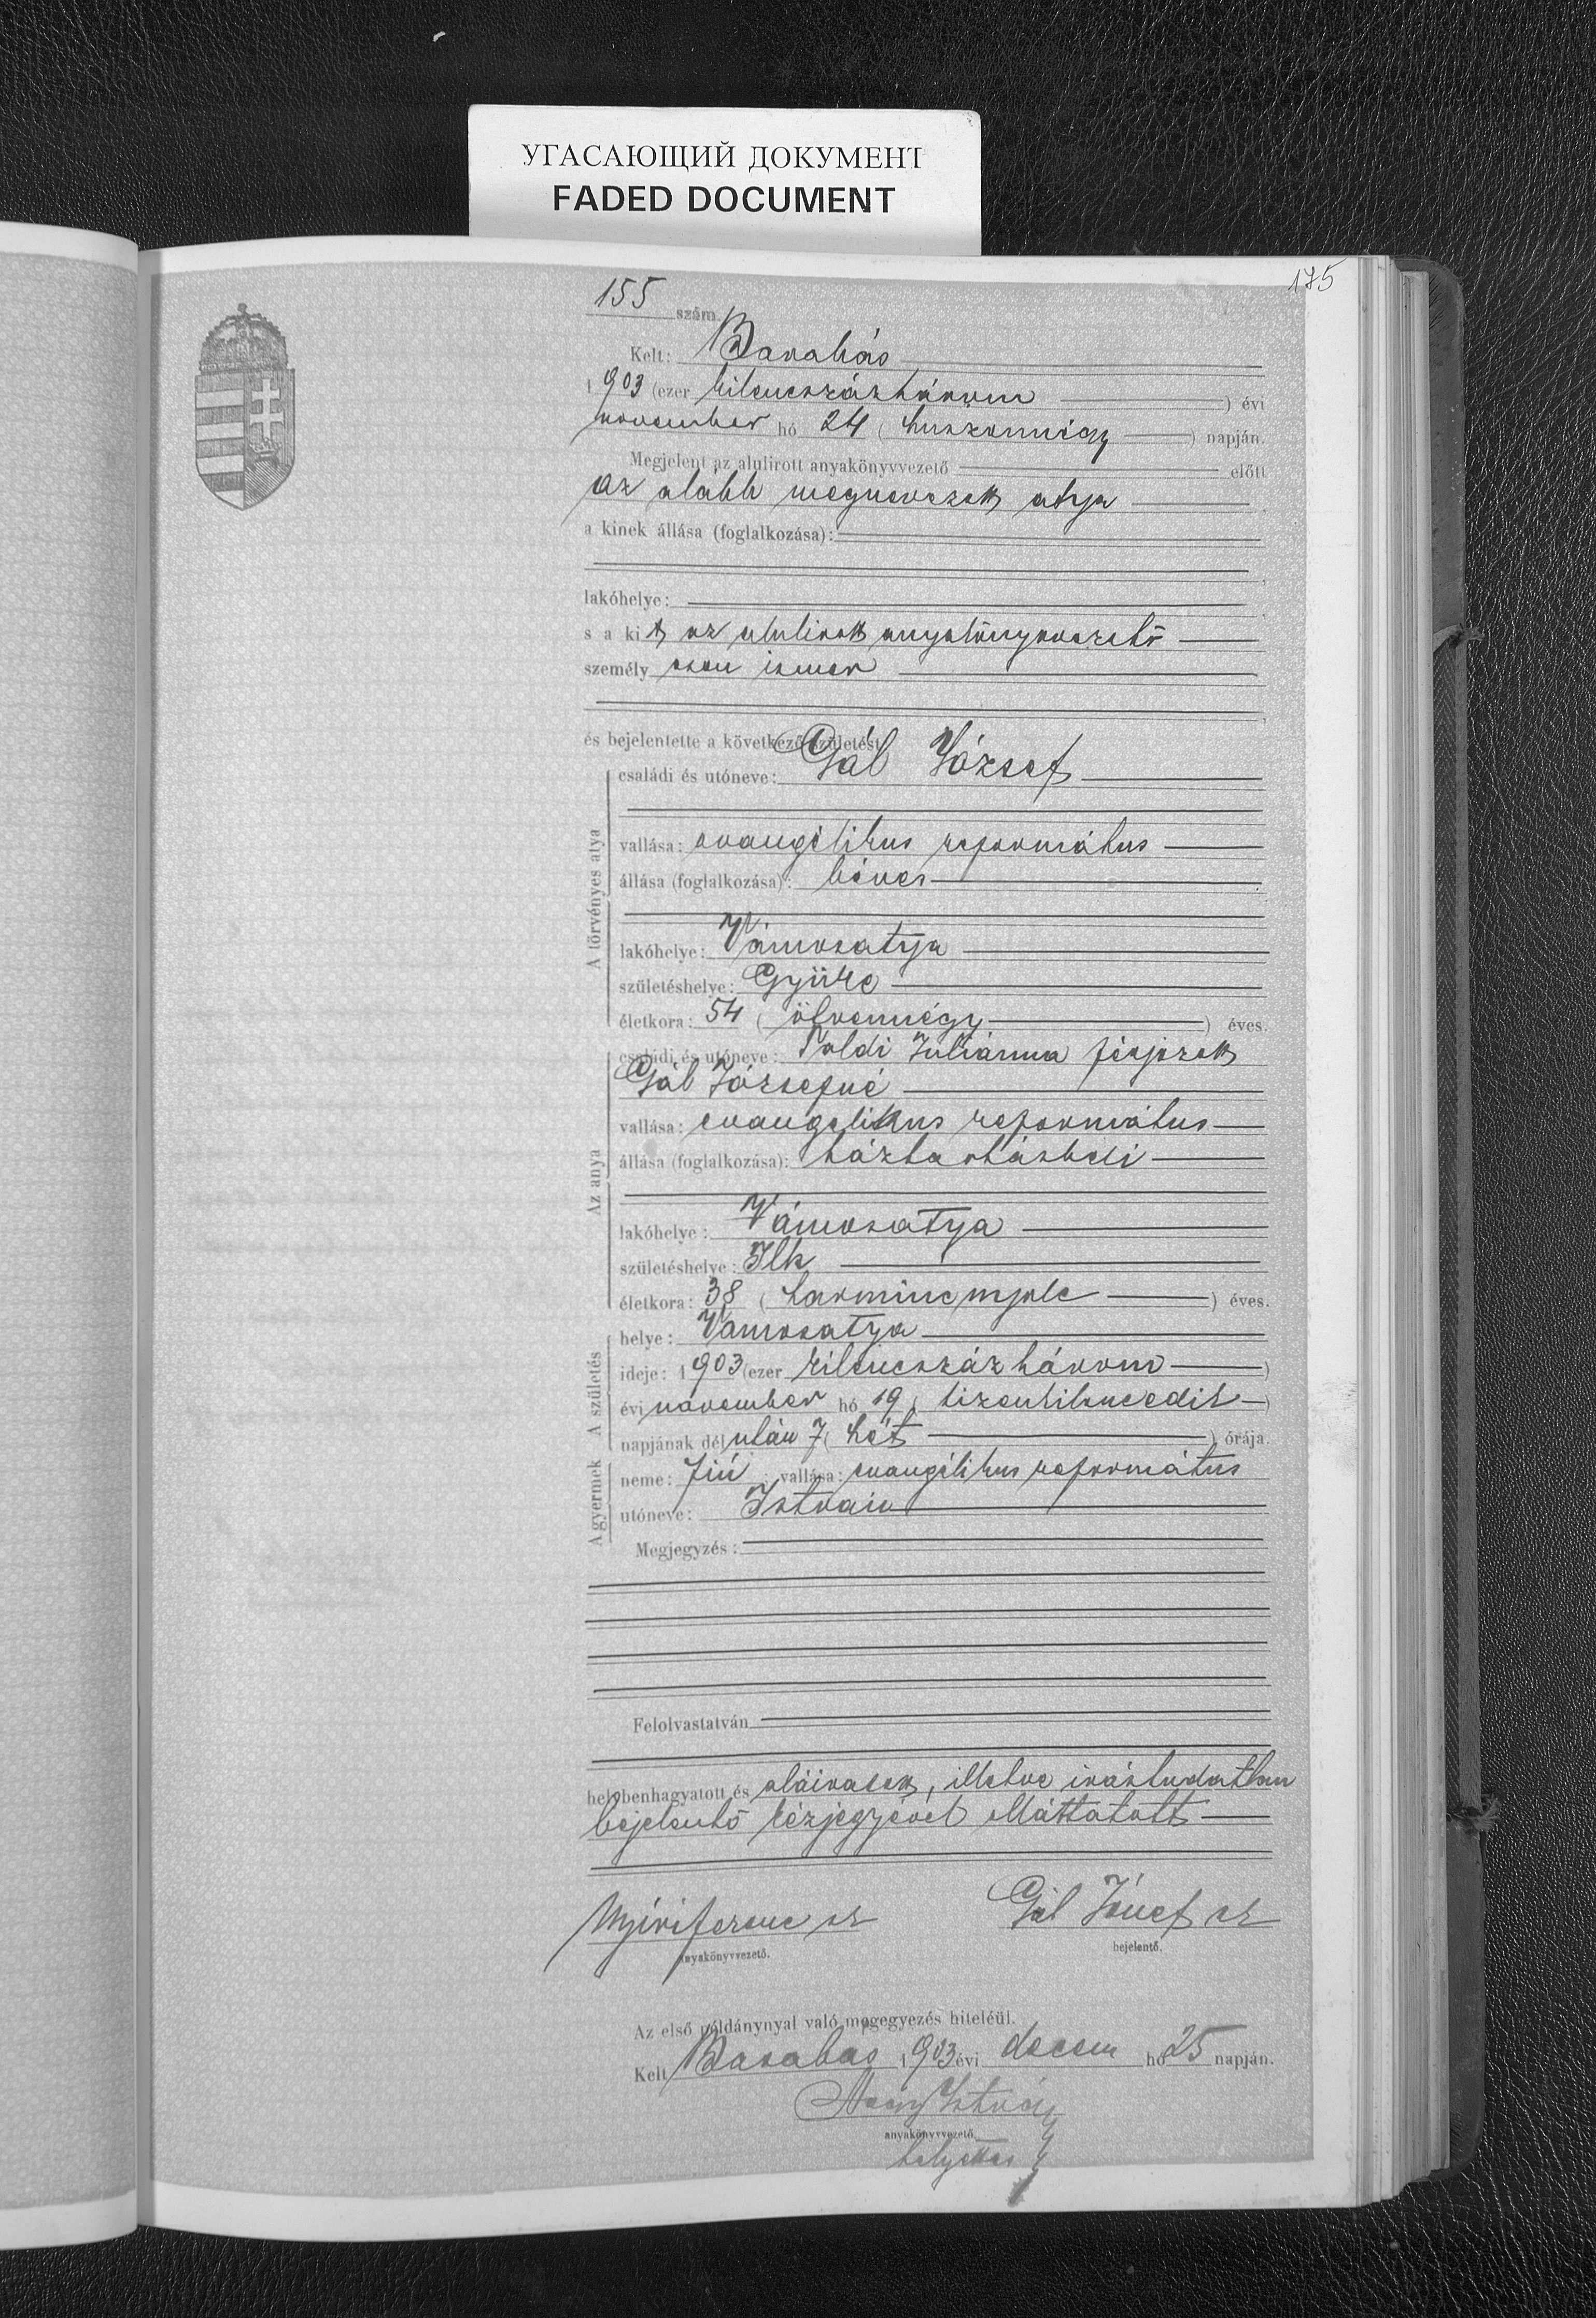 УГАСАЮЩИЙ ДОКУМЕНТ
FADED DOCUMENT
175
155 szám.
Kelt: Barabás
1903 (ezer kilencszázhárom) évi
november hó 24 (huszonnégy) napján.
Megjelent az alulirott anyakönyvvezető előtt
az alább megnevezett atya
a kinek állása (foglalkozása):
lakóhelye:
s a kit az alulirott anyakönyvvezető
személyesen ismer
és bejelentette a következő születést
A törvényes atya
családi és utóneve: Gál József
vallása: evangélikus református
állása (foglalkozása): béres
lakóhelye: Vámosatya
születéshelye: Gyüre
életkora: 54 (ötvennégy) éves.
Az anya
családi és utóneve: Földi Juliánna férjezett
Gál Józsefné
vallása: evangelikus református
állása (foglalkozása): háztartásbeli
lakóhelye: Vámosatya
születéshelye: Ilk
életkora: 38 (harmincnyolc) éves.
A születés
helye: Vámosatya
ideje: 1903 (ezer kilencszázhárom)
évi november hó 19 (tizenkilencedik)
napjának délután 7 (hét) órája.
A gyermek
neme: fiú; vallása: evangélikus református
utóneve: István
Megjegyzés:
Felolvastatván
helybenhagyatott és aláiratott, illetve irástudatlan
bejelentő kézjegyével elláttatott
Nyíri Ferenc sk Gál József sk
anyakönyvvezető. bejelentő.
Az első példánynyal való megegyezés hiteléül.
Kelt Barabás 1903 évi decem hó 25 napján.
Nagy István
anyakönyvvezető
helyettes